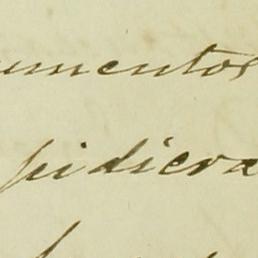 umentos
pidiera